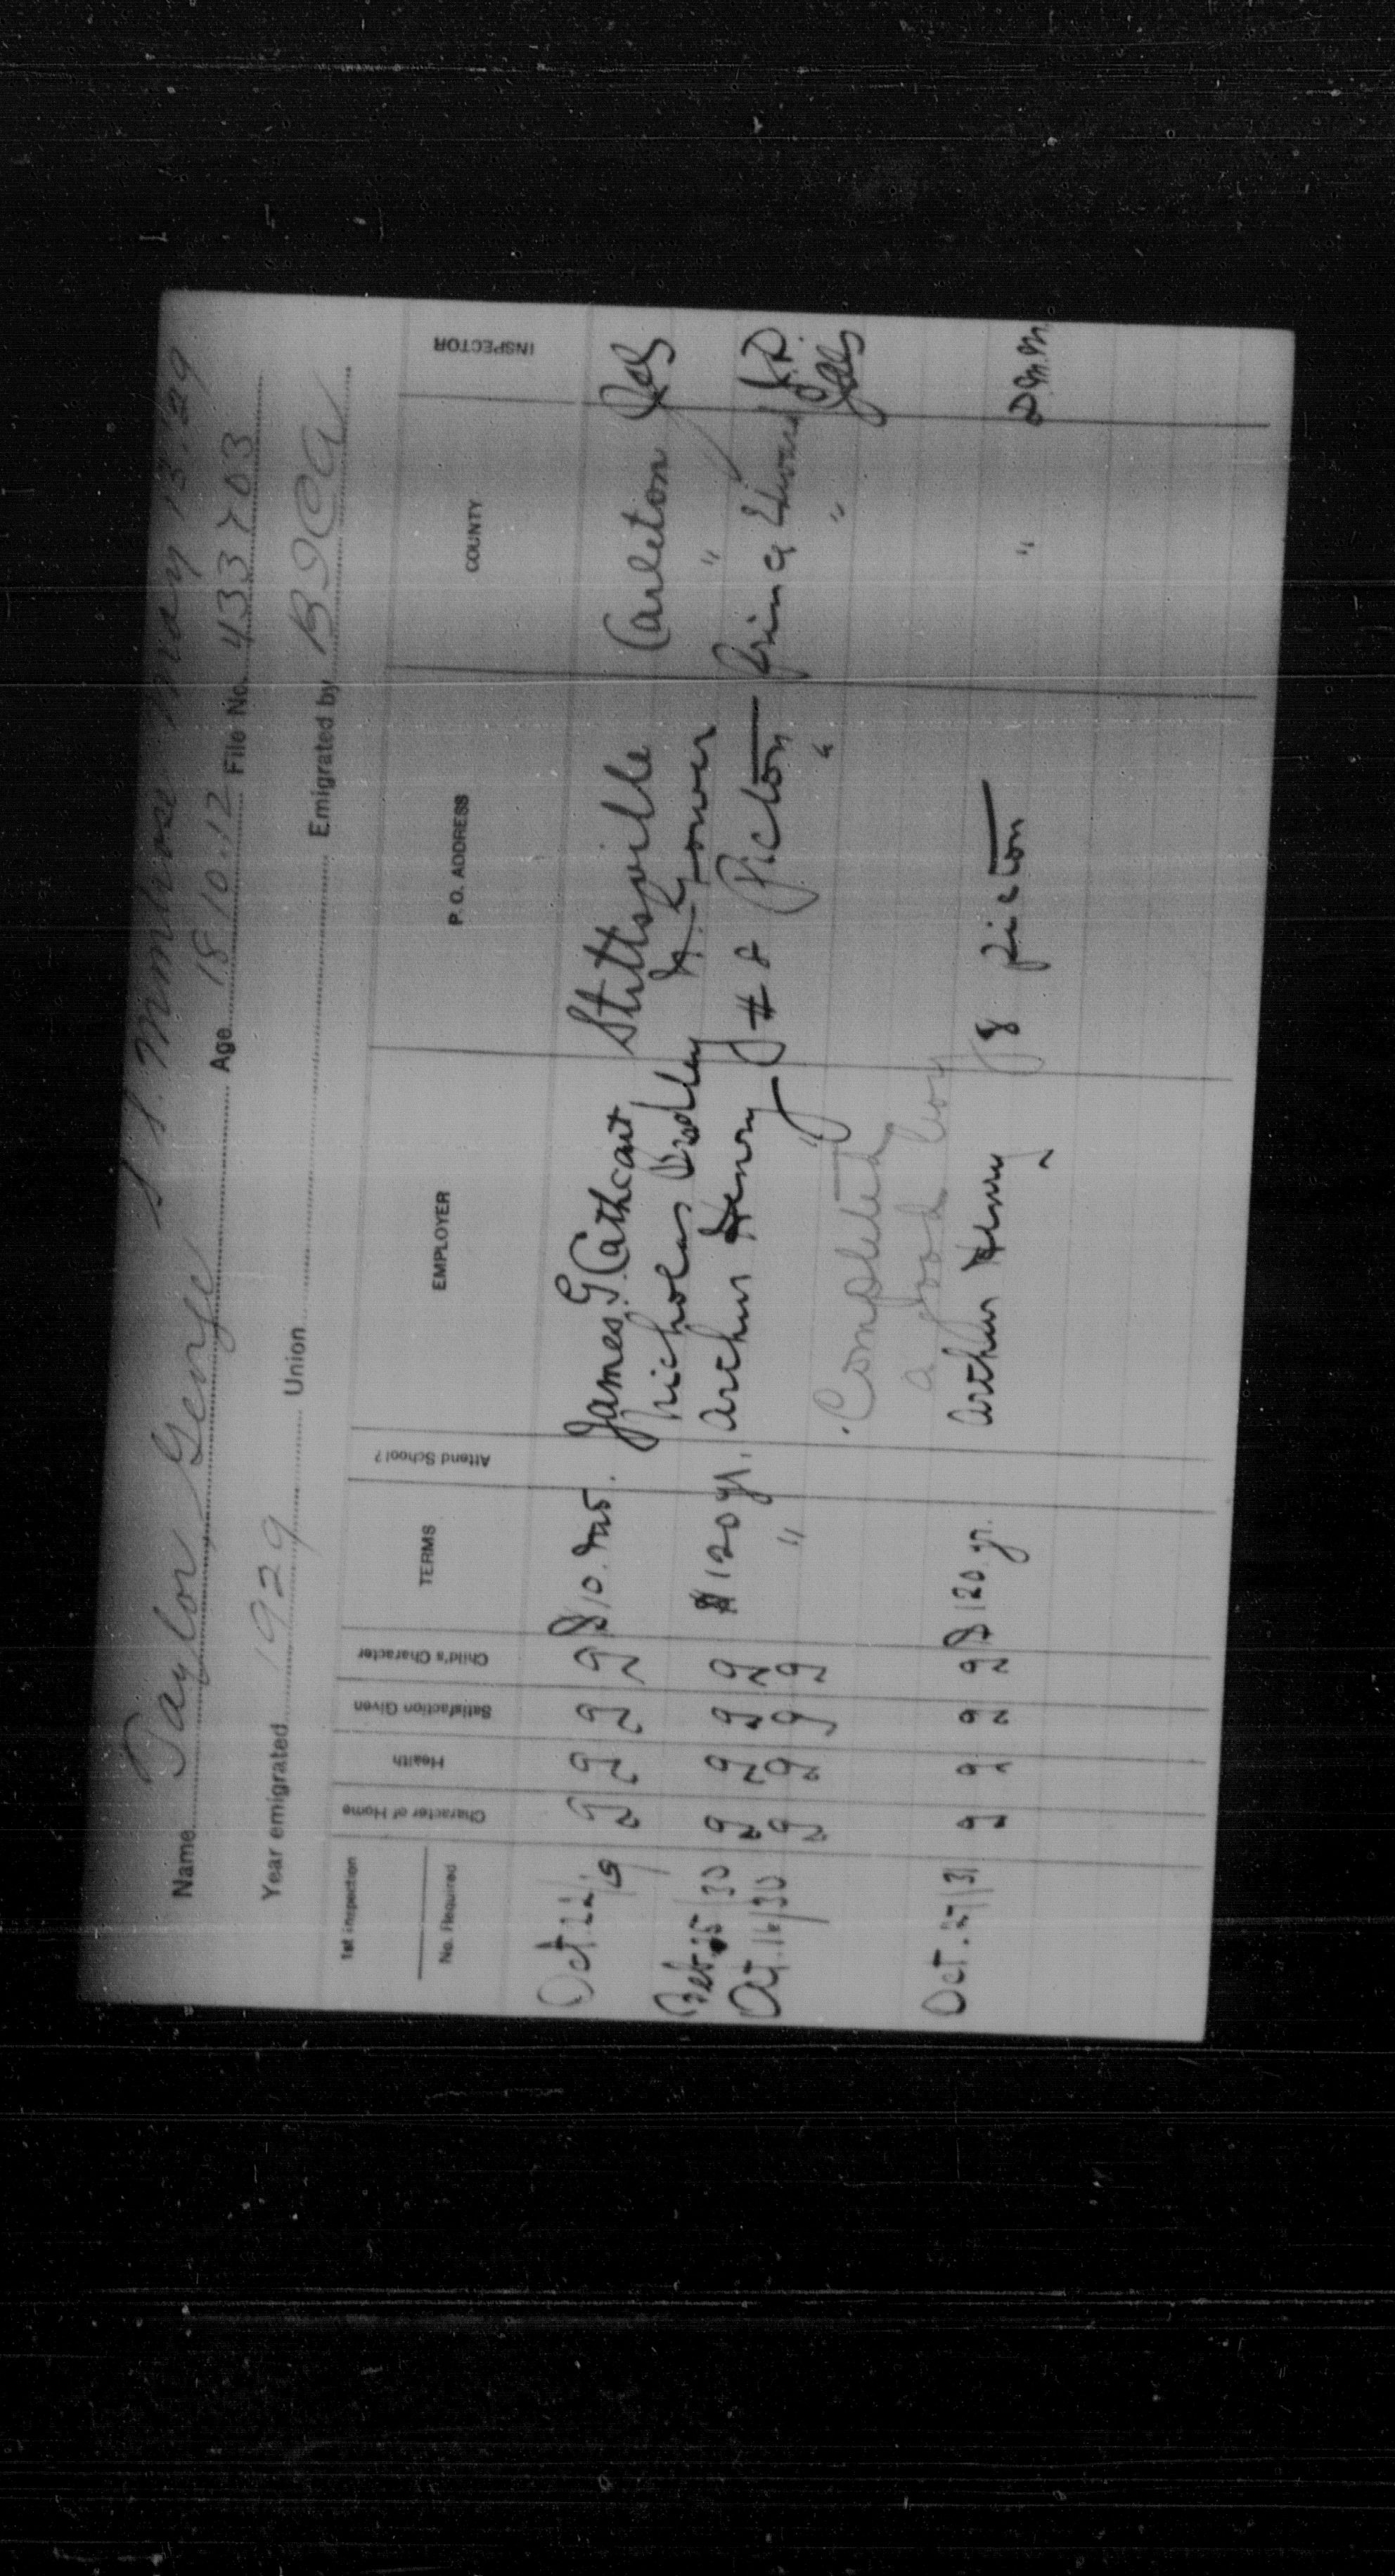 S.S. Minnedosa May 13.29
Name Taylor George Age 18.10.12 File No. 433703
Year emigrated 1929 Union Emigrated by BICA
1st inspection
No. Required Character of Home Health Satisfaction Given Child's Character TERMS Attend School? EMPLOYER P. O. ADDRESS COUNTY INSPECTOR
Oct. 22/ g g g g $10. mo. James G. Cathcart Stittsville Carleton
Nicholas N. Gower "
Feb. 15/30 g g g g $120 yr. Arthur Henry # 8 Picton Prince Edward
Oct. 16/30 g g g g " " " "
Completed
a good boy
Oct. 27/31 g g g g $120. yr. Arthur Henry 8 Picton " D.M.M.